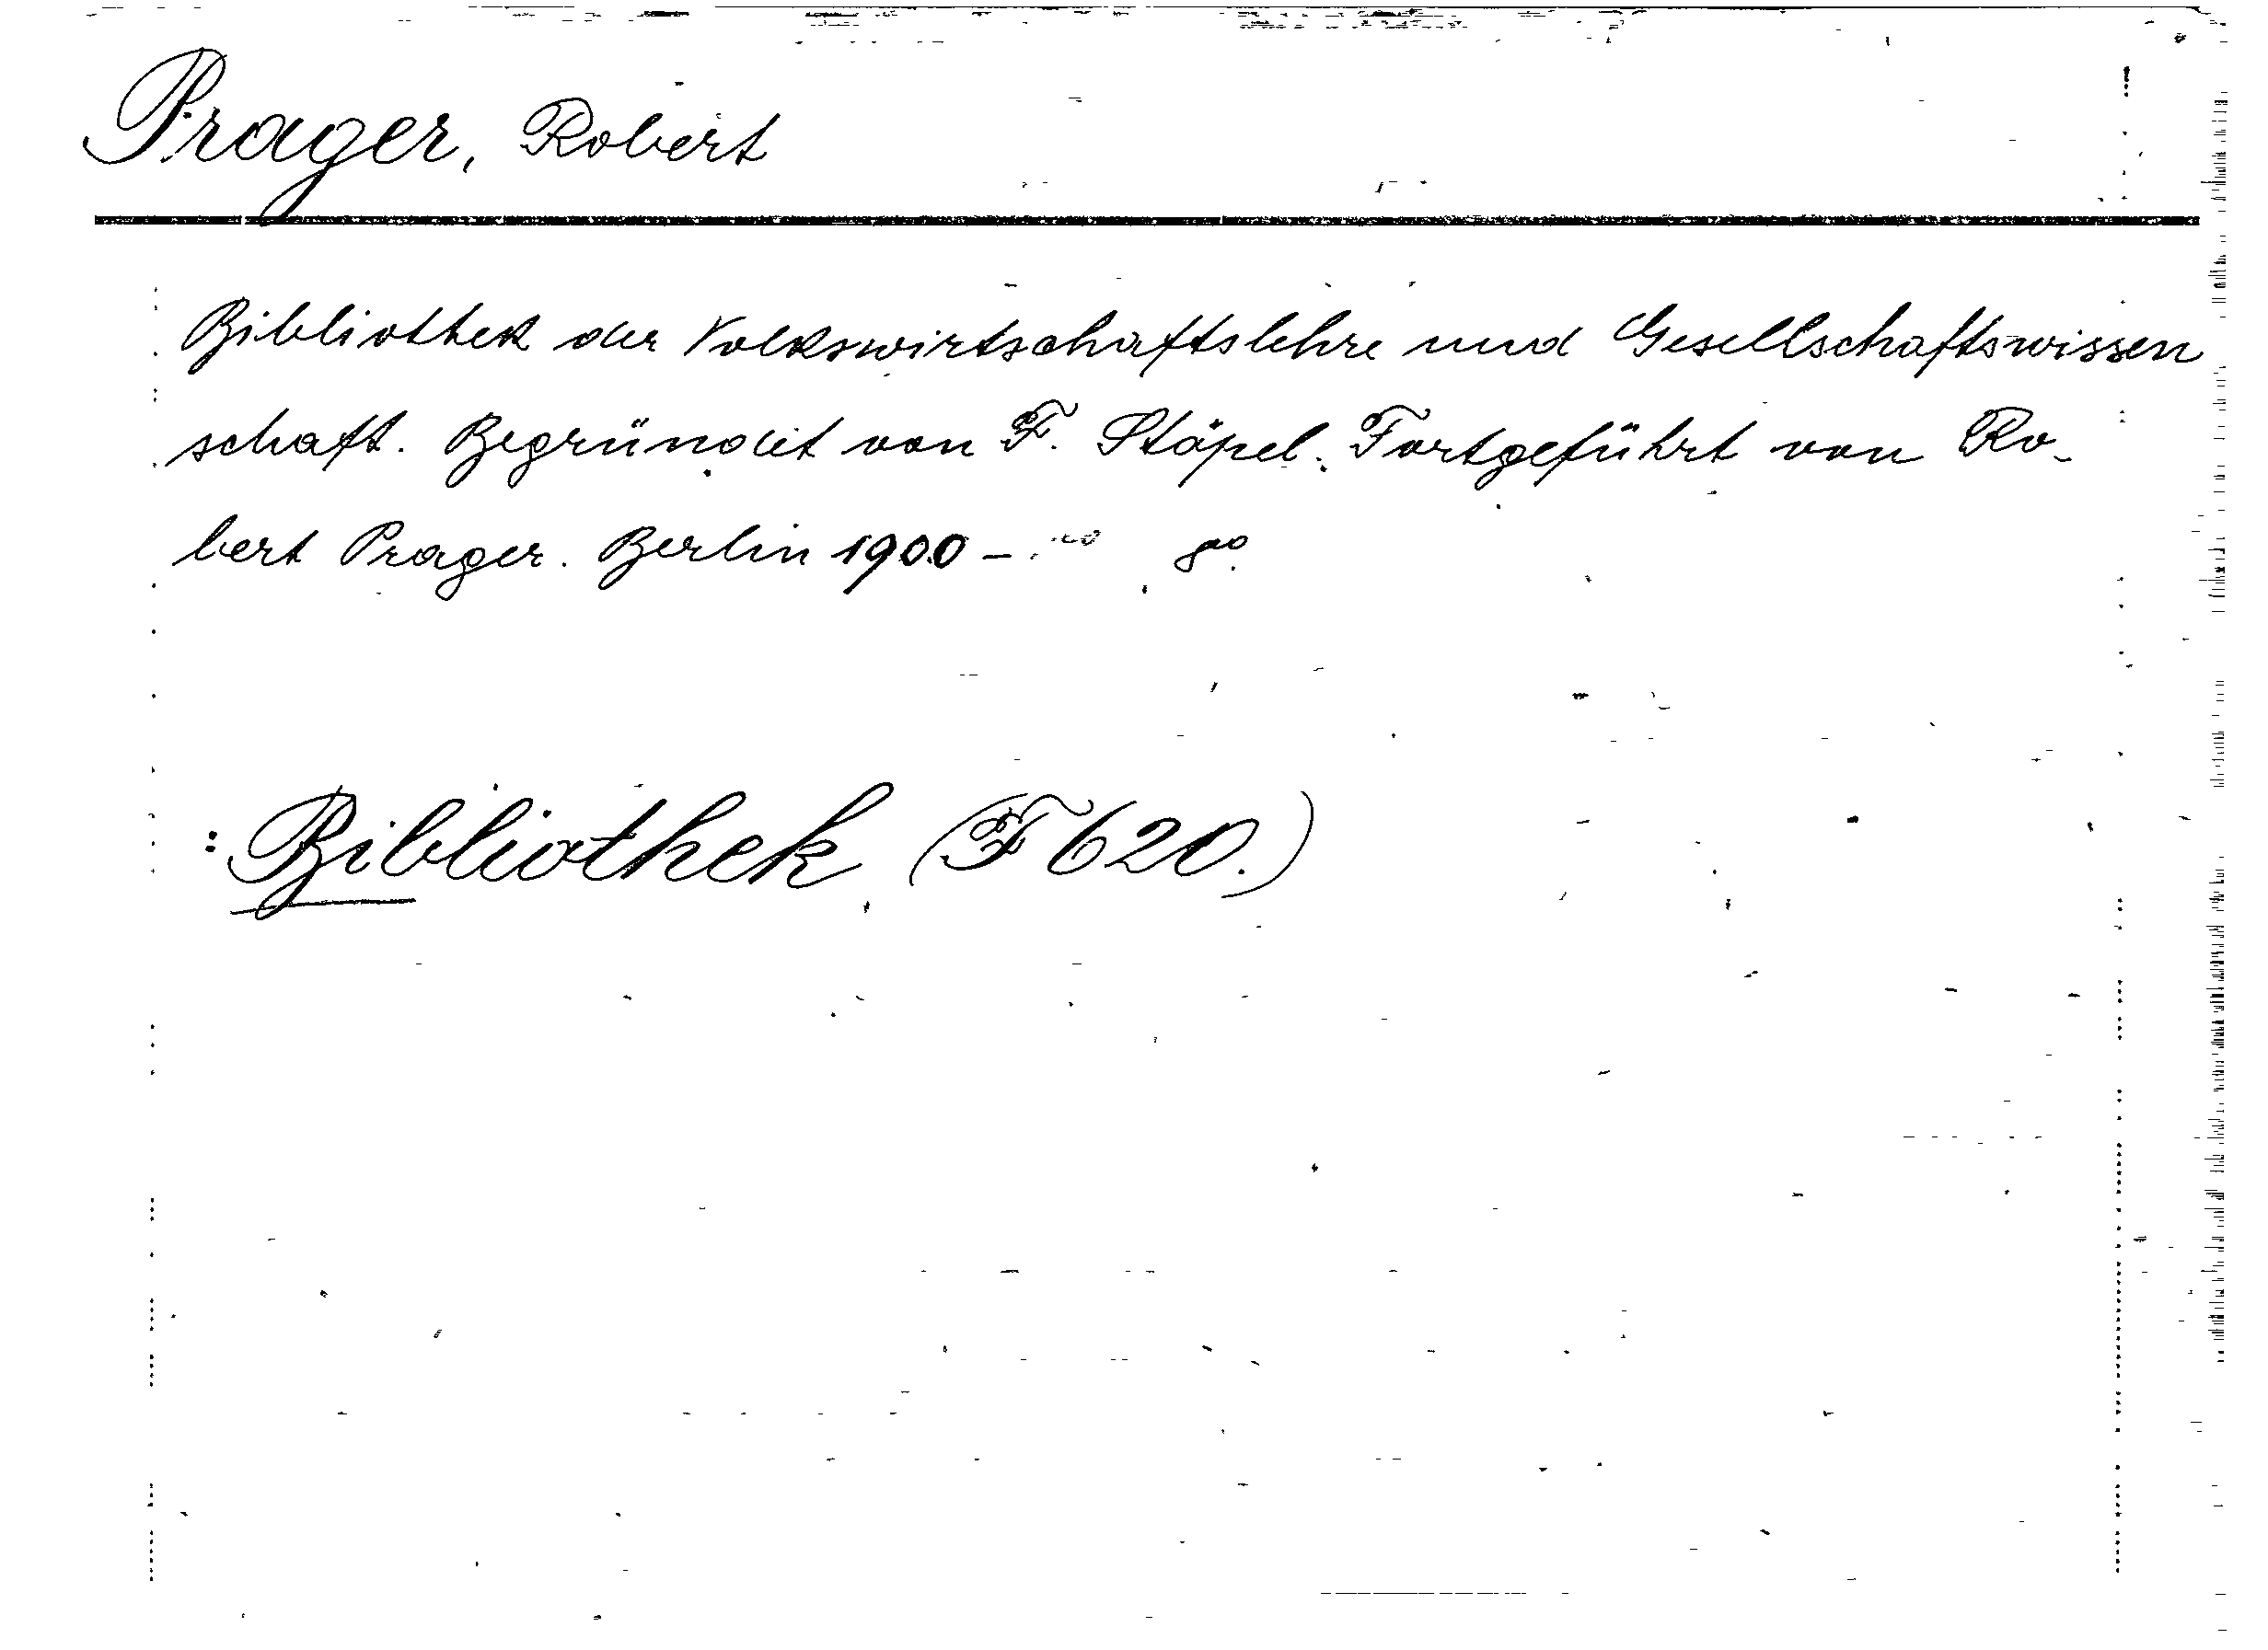 Prager, Robert
Bibliothek der Volkswirtschaftslehre und Gesellschaftswissen
schaft. Begründet von F. Stöpel. Fortgeführt von Ro-
bert Prager. Berlin 1900 - 8º.
: Bibliothek (F 620.)